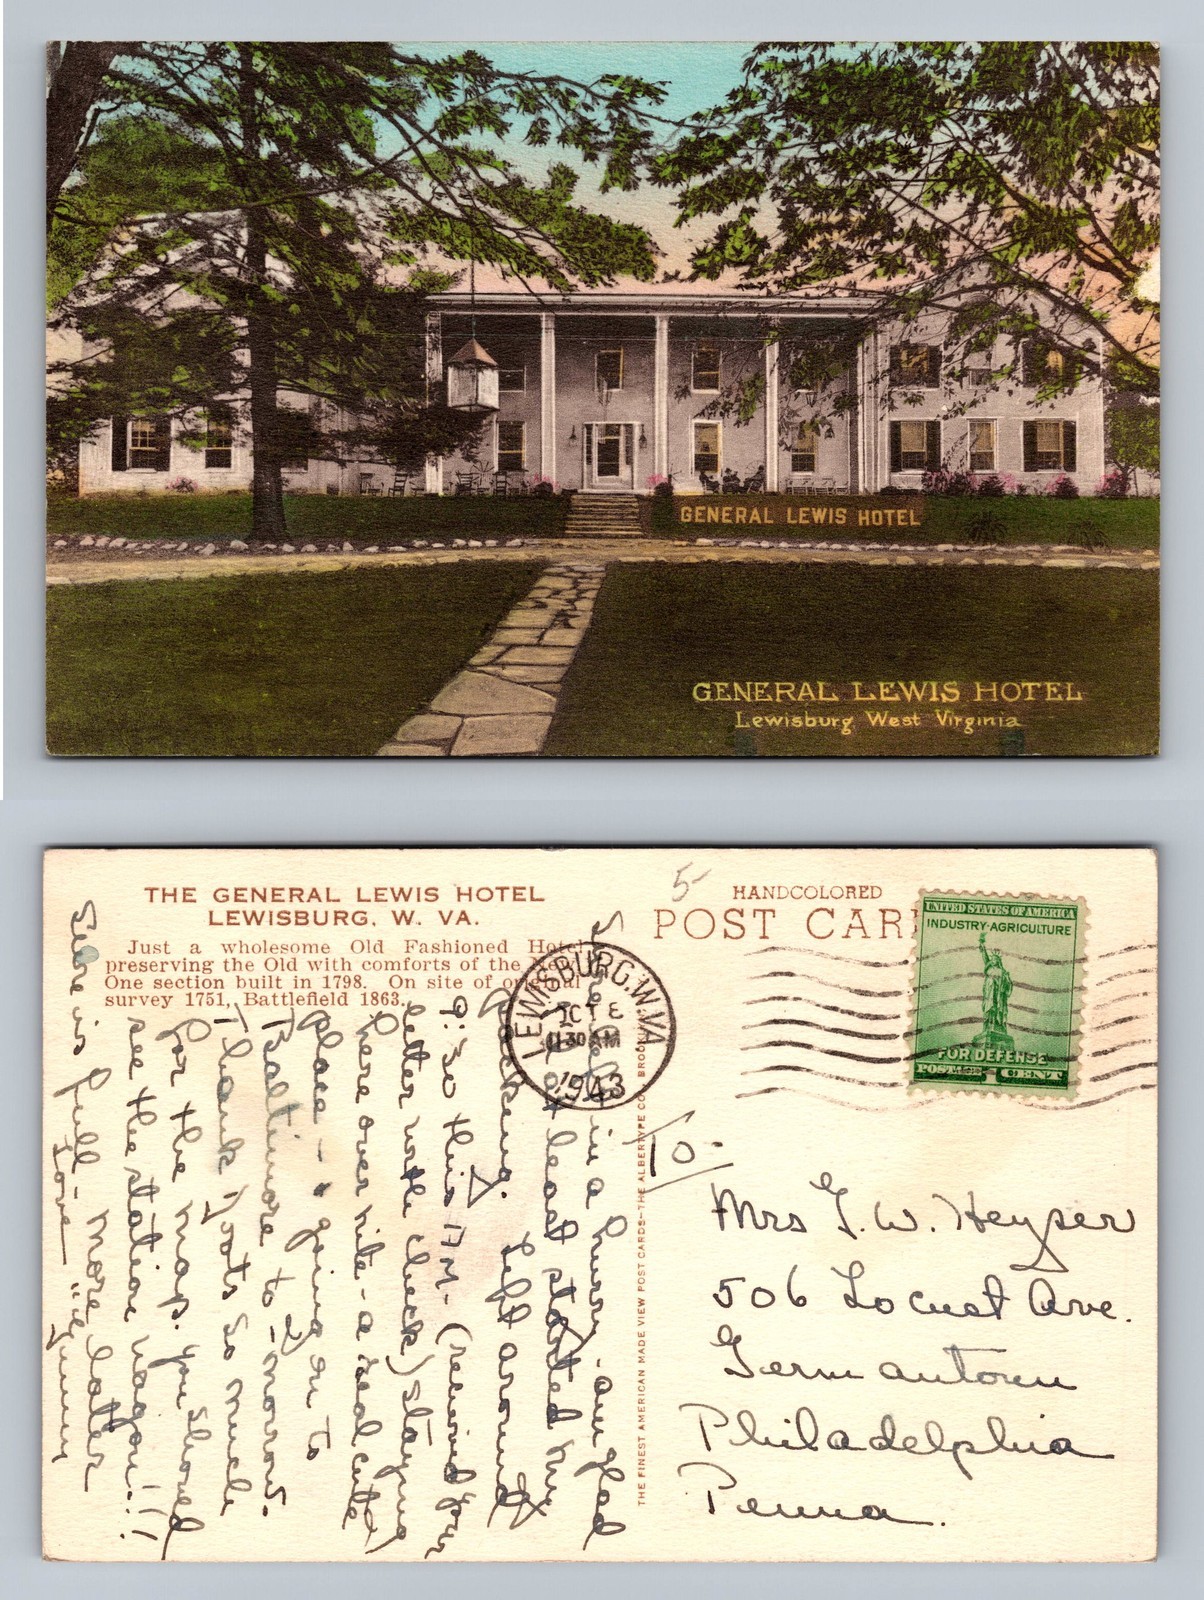 GENERAL LEWIS HOTEL
GENERAL LEWIS HOTEL
Lewisburg West Virginia
THE GENERAL LEWIS HOTEL
LEWISBURG, W. VA.
Just a wholesome Old Fashioned Hotel
preserving the Old with comforts of the New
One section built in 1798. On site of original
survey 1751, Battlefield 1863.
5-
HANDCOLORED
POST CAR
UNITED STATES OF AMERICA
INDUSTRY-AGRICULTURE
FOR DEFENSE
POSTAGE 1 CENT
LEWISBURG, W.VA.
OCT 8
11 30 AM
1943
THE FINEST AMERICAN MADE VIEW POST CARDS-THE ALBERTYPE CO., BROOK
in a hurry - am glad
at least started my
packing. Left around
9:30 this A.M. - (received your
letter with check) Staying
here over nite - a real cute
place - going on to
Baltimore to-morrow.
Thank Yots so much
for the map. You should
see the station wagon!!!
Sure is full - More later
Love
To-
Mrs G. W. Heyser
506 Locust Ave.
Germantown
Philadelphia
Penna.